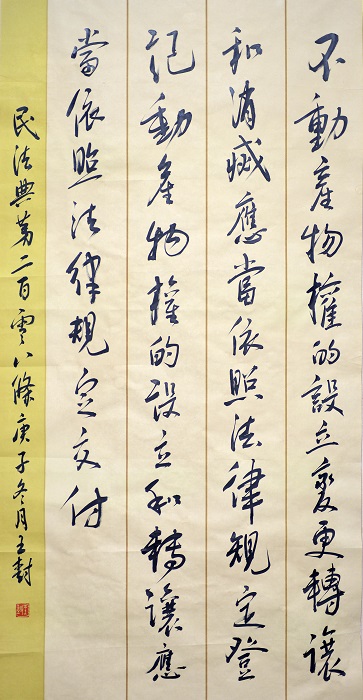 不動產物權的設立變更轉讓
和消滅應當依照法律規定登
記動產物權的設立和轉讓應
當依照法律規定交付
民法典第二百零八條庚子冬月王封